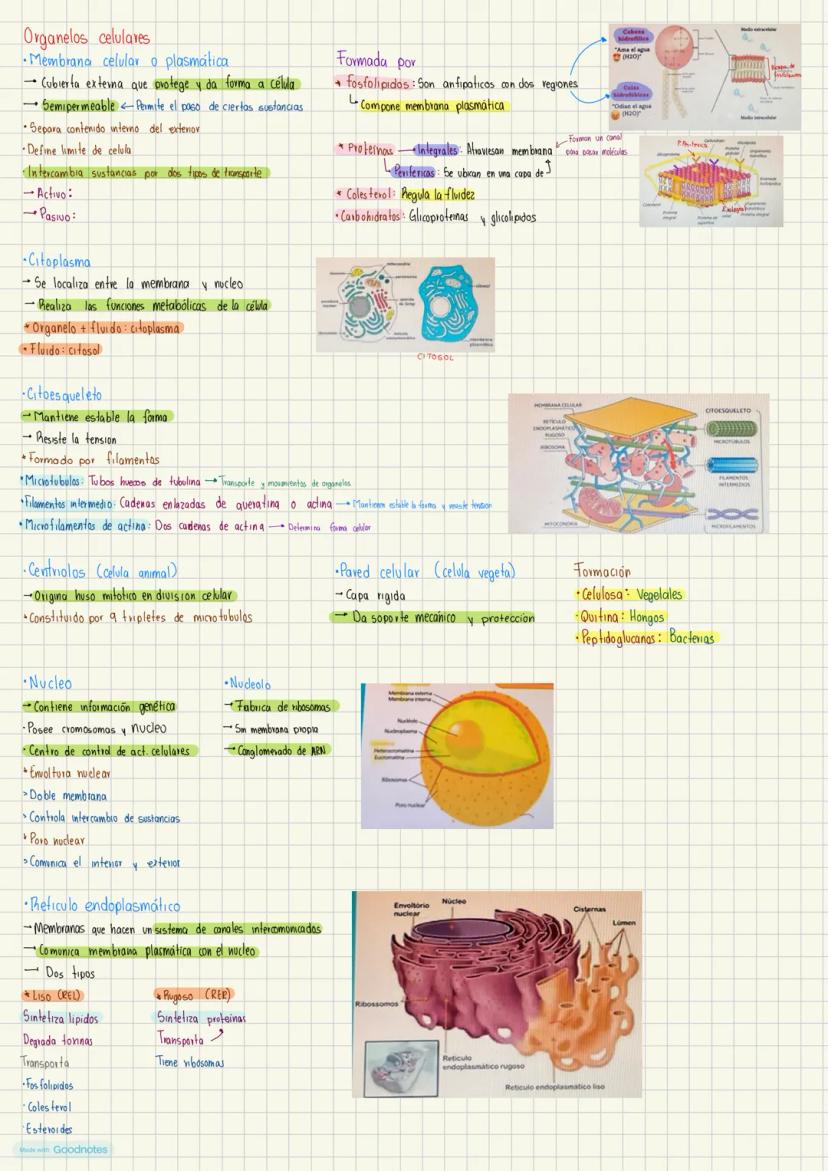 Organelos celulares
·Membrana celular o plasmática
→ Cubierta externa que protege y da forma a célula
→ Semipermeable ← Permite el paso de ciertas sustancias
·Separa contenido interno del exterior
·Define limite de celula
·Intercambia sustancias por dos tipos de transporte
→ Activo:
→ Pasivo:
Formada por
* Fosfolipidos: Son anfipaticos con dos regiones
Compone membrana plasmática
* Proteínas → Integrales: Atraviesan membrana
Forman un canal
para pasar moléculas
Perifericas: Se ubican en una capa de
* Colesterol: Regula la fluidez
·Carbohidratos: Glicoproteinas y glicolipidos
Cabeza
hidrofílica
"Ama el agua
(H2O)"
Colas
hidrofóbicas
"Odian el agua
(H2O)"
Medio extracelular
Medio intracelular
·Citoplasma
→ Se localiza entre la membrana y nucleo
→ Realiza las funciones metabólicas de la célula
* Organelo + fluido: citoplasma
* Fluido: citosol
CITOSOL
·Citoesqueleto
→ Mantiene estable la forma
→ Resiste la tension
* Formado por filamentos
*Microtubulos: Tubos huecos de tubulina → Transporte y movimientos de organelos
*Filamentos intermedio: Cadenas enlazadas de queratina o actina → Mantienen estable la forma y resiste tension
*Microfilamentos de actina: Dos cadenas de actina → Determina forma celular
MEMBRANA CELULAR
RETÍCULO
ENDOPLASMÁTICO
RUGOSO
RIBOSOMA
MITOCONDRIA
CITOESQUELETO
MICROTÚBULOS
FILAMENTOS
INTERMEDIOS
MICROFILAMENTOS
·Centriolos (celula animal)
→ Origina huso mitotico en division celular
*Constituido por 9 tripletes de microtubulos
·Pared celular (celula vegetal)
→ Capa rigida
→ Da soporte mecánico y protección
Formación
·Celulosa: Vegetales
·Quitina: Hongos
·Peptidoglucanos: Bacterias
·Nucleo
→ Contiene información genética
·Posee cromosomas y nucleo
·Centro de control de act. celulares
*Envoltura nuclear
>Doble membrana
>Controla intercambio de sustancias
*Poro nuclear
>Comunica el interior y exterior
·Nucleolo
→ Fabrica de ribosomas
→ Sin membrana propia
→ Conglomerado de ARN
Membrana externa
Membrana interna
Nucléolo
Nucleoplasma
Heterocromatina
Eucromatina
Ribosomas
Poro nuclear
·Retículo endoplasmático
→ Membranas que hacen un sistema de canales intercomunicados
→ Comunica membrana plasmática con el nucleo
→ Dos tipos
* Liso (REL)
Sintetiza lipidos
Degrada toxinas
Transporta
·Fosfolipidos
·Colesterol
·Esteroides
* Rugoso (RER)
Sintetiza proteinas
Transporta
Tiene ribosomas
Envoltório
nuclear
Núcleo
Cisternas
Lúmen
Ribossomos
Retículo
endoplasmático rugoso
Retículo endoplasmático liso
Made with Goodnotes